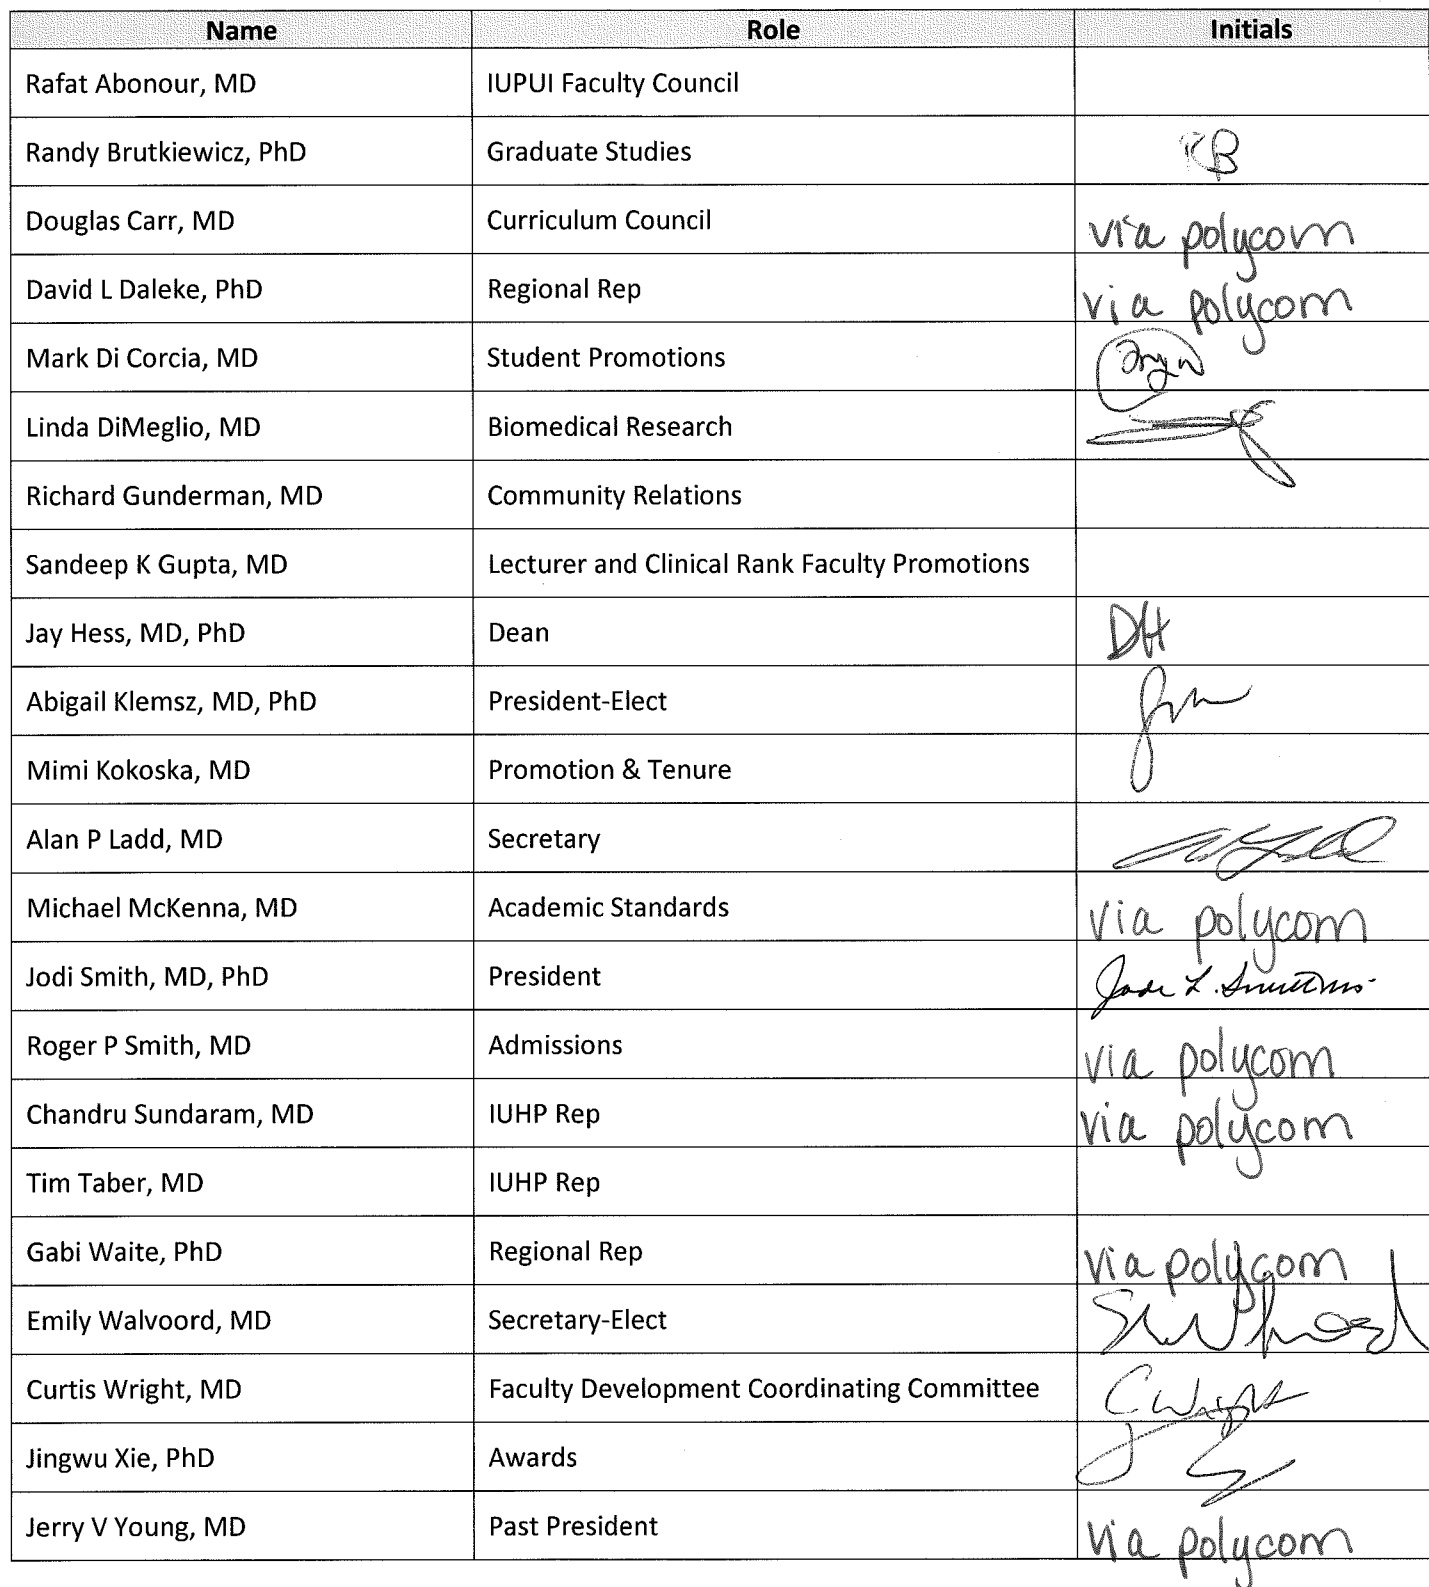 Name Role Initials
Rafat Abonour, MD IUPUI Faculty Council
Randy Brutkiewicz, PhD Graduate Studies RB
Douglas Carr, MD Curriculum Council via polycom
David L Daleke, PhD Regional Rep via polycom
Mark Di Corcia, MD Student Promotions
Linda DiMeglio, MD Biomedical Research
Richard Gunderman, MD Community Relations
Sandeep K Gupta, MD Lecturer and Clinical Rank Faculty Promotions
Jay Hess, MD, PhD Dean DH
Abigail Klemsz, MD, PhD President-Elect
Mimi Kokoska, MD Promotion & Tenure
Alan P Ladd, MD Secretary
Michael McKenna, MD Academic Standards via polycom
Jodi Smith, MD, PhD President
Roger P Smith, MD Admissions via polycom
Chandru Sundaram, MD IUHP Rep via polycom
Tim Taber, MD IUHP Rep
Gabi Waite, PhD Regional Rep via polycom
Emily Walvoord, MD Secretary-Elect
Curtis Wright, MD Faculty Development Coordinating Committee CWright
Jingwu Xie, PhD Awards
Jerry V Young, MD Past President via polycom